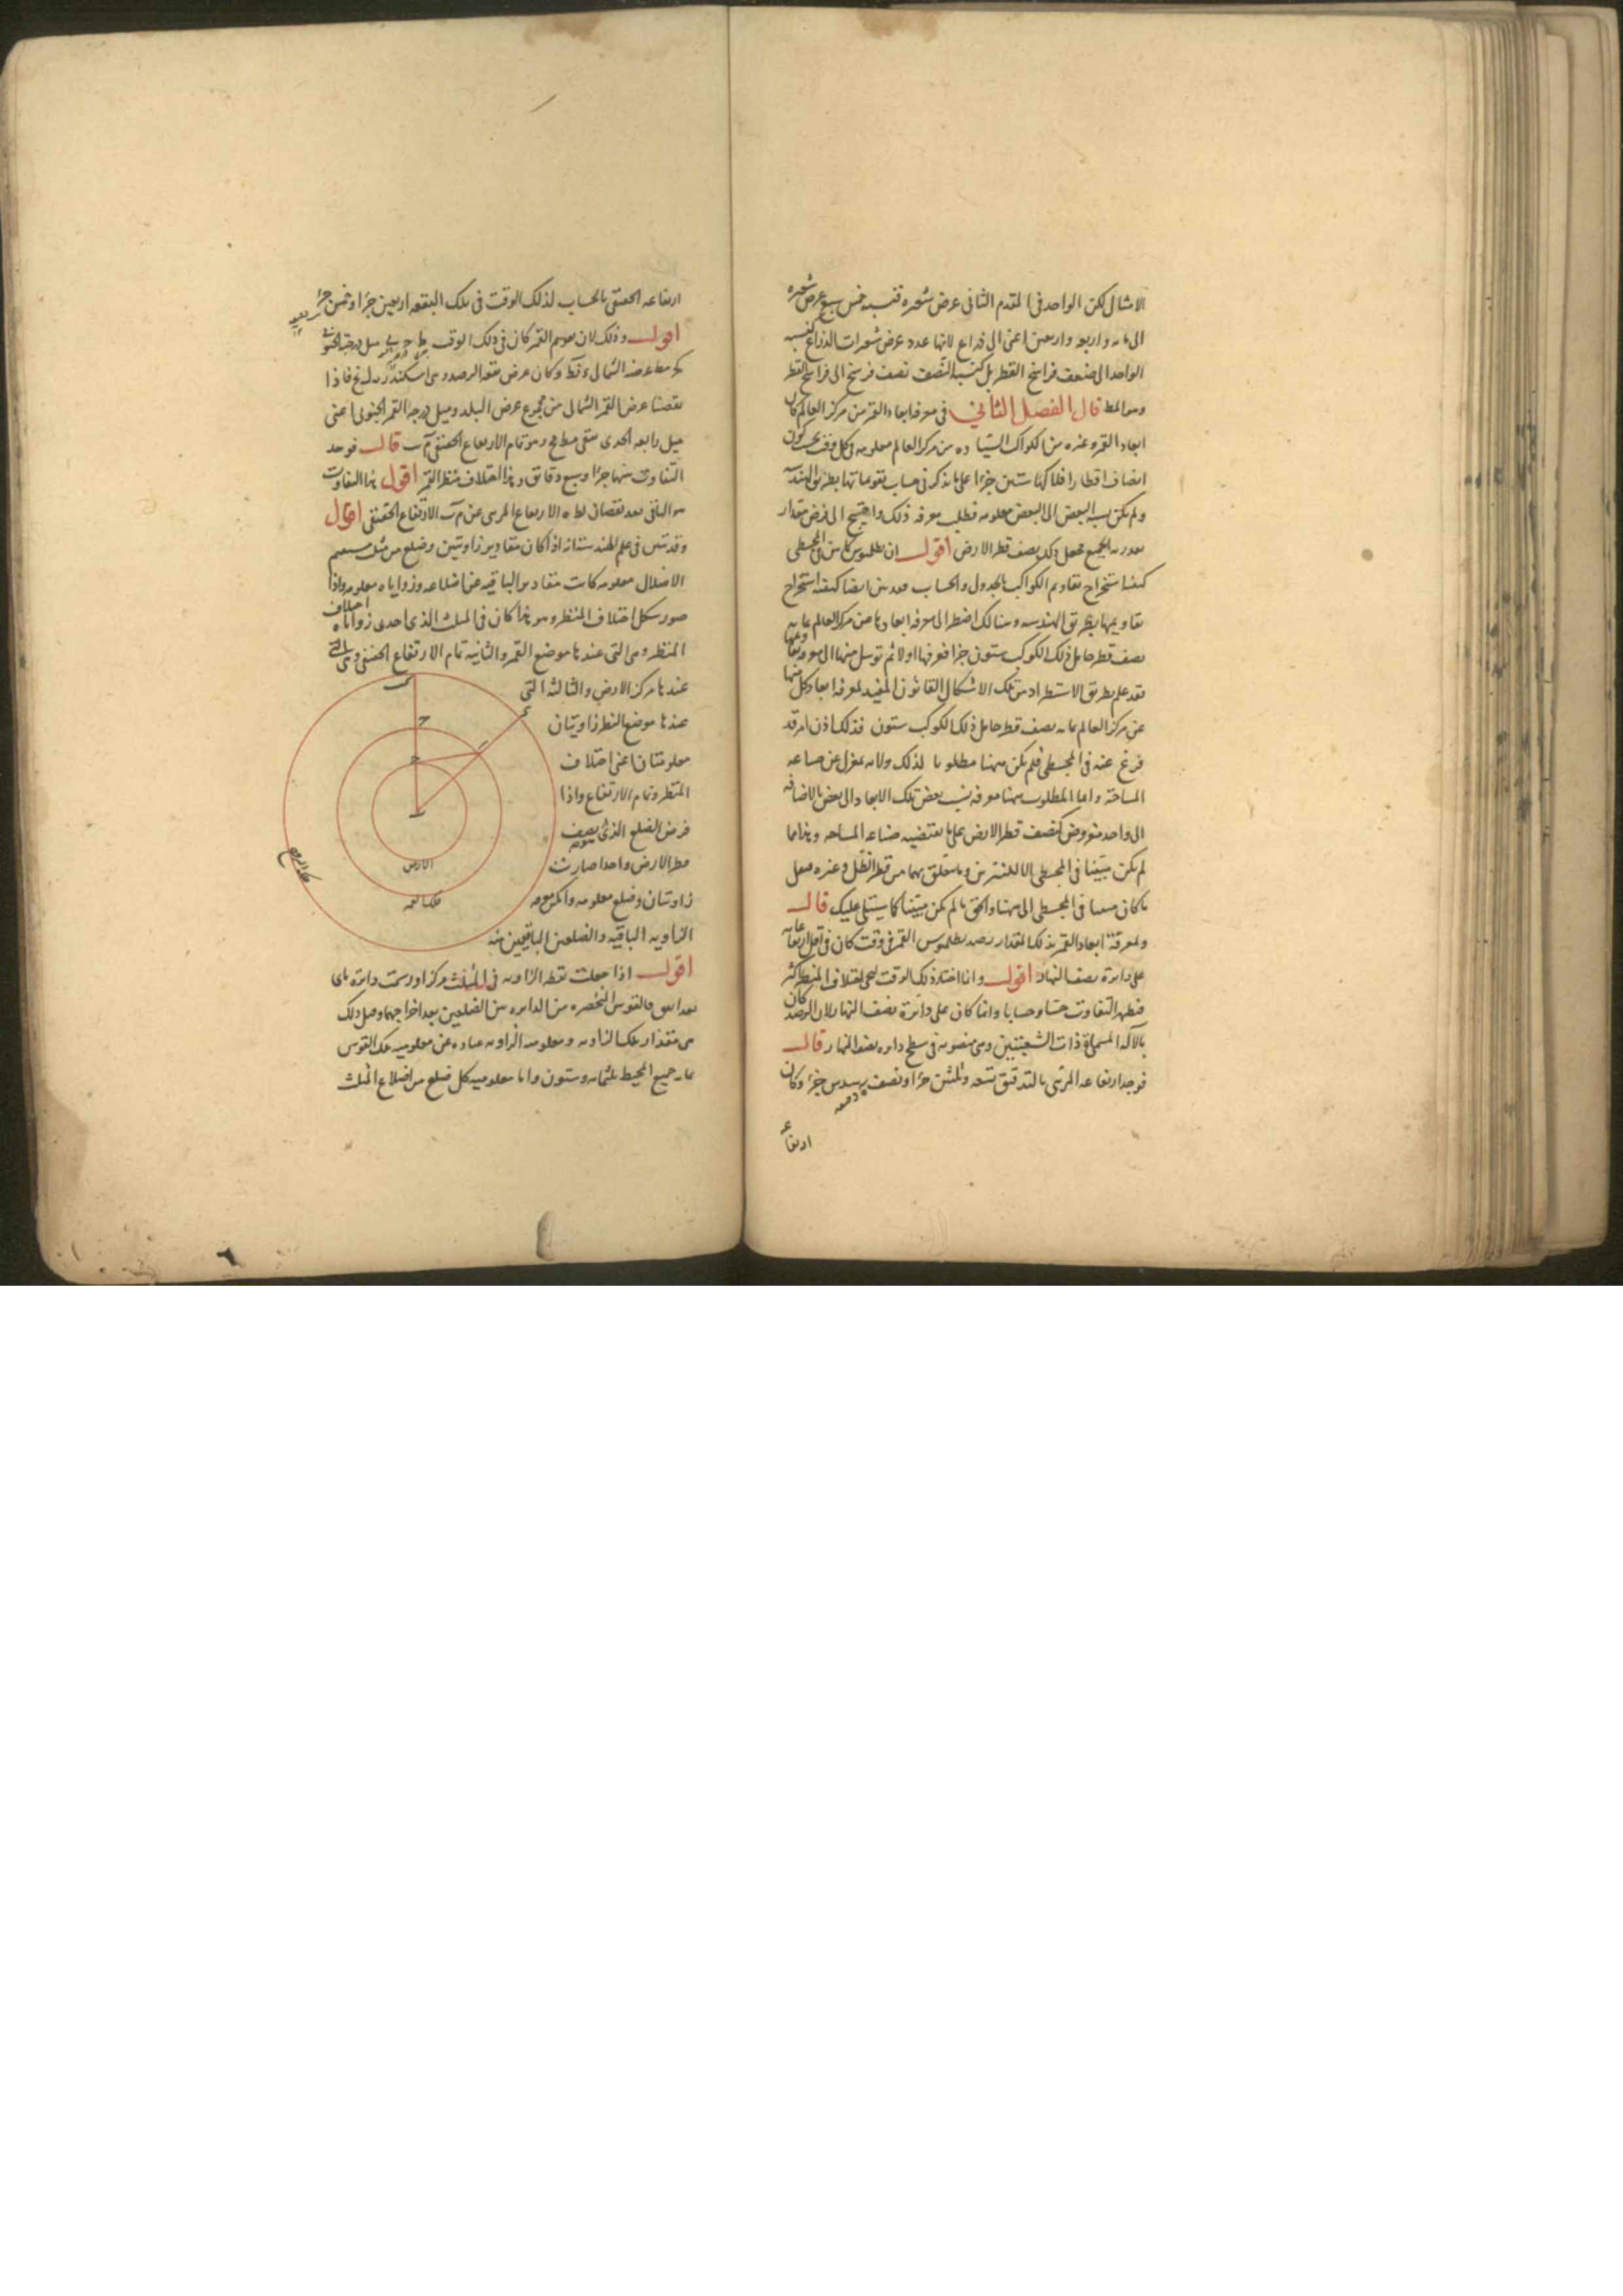 الامثال لكن الواحد فى المقدم الثانى عرض شعيره فنسبه خمس سبع عرض شعيره
الى مايه واربعه واربعين اعنى الى ذراع لانها عدد عرض شعيرات الذراع كنسبه
الواحد الى ضعف فراسخ القطر بل كنسبه النصف نصف فرسخ الى فراسخ القطر
وهو المط قال الفصل الثانى فى معرفه ابعاد القمر من مركز العالم كان
ابعاد القمر وغيره من الكواكب السيارة من مركز العالم معلومه فى كل وقت بحيث يكون
انصاف اقطار افلاكها ستين جزءا على ما يذكر فى حساب تقويماتها بطريق الهندسه
ولم يكن نسبه البعض الى البعض معلومه فطلب معرفه ذلك واحتيج الى فرض مقدار
يقدر به الجميع فجعل ذلك نصف قطر الارض اقول ان بطلميوس كما بين فى المجسطى
كيفيه استخراج تقاويم الكواكب بالجدول والحساب فقد بين ايضا كيفيه استخراج
تقاويمها بطريق الهندسه وهنالك اضطر الى معرفه ابعادها من مركز العالم بما به
نصف قطر حامل ذلك الكوكب ستون جزءا فعرفها اولا ثم توسل منها الى معرفه تقاويمها
فقد علم بطريق الاستطراد من تلك الاشكال القانون المفيد لمعرفه ابعاد كل منها
عن مركز العالم بما به نصف قطر حامل ذلك الكوكب ستون فذلك اذن امر قد
فرغ عنه فى المجسطى فلم يكن ههنا مطلوبا لذلك ولانه بمعزل عن صناعه
المساحة وانما المطلوب ههنا معرفه نسب بعض تلك الابعاد الى بعض بالاضافه
الى واحد مفروض كنصف قطر الارض على ما تقتضيه صناعه المساحه وهذا مما
لم يكن مبينا فى المجسطى الا للنيرين وما يتعلق بهما من قطر الظل وغيره فنقل
ما كان مبينا فى المجسطى الى ههنا والحق ما لم يكن مبينا كما سيتلى عليك قال
ولمعرفة ابعاد القمر بذلك المقدار رصد بطلميوس القمر فى وقت كان فى اقل ارتفاعاته
على دايرة نصف النهار اقول وانما اختار ذلك الوقت ليجى اختلاف المنظر اكثر
فيظهر التفاوت حسا وحسابا وانما كان على دائرة نصف النهار لان الرصد كان
بالآلة المسماة ذات الشعبتين وهى منصوبه فى سطح دايره نصف النهار قال
فوجد ارتفاعه المرئى بالتدقيق تسعه وثلثين جزءا ونصف سدس جزء وكان
ارتفاعه
ارتفاعه الحقيقى بالحساب لذلك الوقت فى تلك البقعه اربعين جزءا وخمس جزء
اقول وذلك لان تقويم القمر كان فى ذلك الوقت ميل درجته الجنوبى
عرضه الشمالى وكان عرض بقعه الرصد وهى اسكندريه فاذا
نقصنا عرض القمر الشمالى من مجموع عرض البلد وميل درجه القمر الجنوبى اعنى
ميل رابعه الجدى بقى وهو تمام الارتفاع الحقيقى قال فوجد
التفاوت بينهما جزءا وسبع دقائق وهذا اختلاف منظر القمر اقول هذا التفاوت
هو الباقى بعد نقصان الارتفاع المرئى عن الارتفاع الحقيقى اقول
وقد تبين فى علم الهندسة انه اذا كان مقادير زاويتين وضلع من مثلث مستقيم
الاضلاع معلومه كانت مقادير الباقيه من اضلاعه وزواياه معلومه واذا
صور شكل اختلاف المنظر وهو هذا كان فى المثلث الذى احدى زواياه اختلاف
المنظر وهى التى عندها موضع القمر والثانيه تمام الارتفاع الحقيقى وهى التى
عندها مركز الارض والثالثه التى
عندها موضع النظر زاويتان
معلومتان اعنى اختلاف
المنظر وتمام الارتفاع واذا
فرض الضلع الذى هو نصف
قطر الارض واحدا صارت
زاويتان وضلع معلومه وامكن معرفه
الزاويه الباقيه والضلعين الباقيين منه
اقول اذا جعلت نقطه الزاويه فى المثلث مركزا ورسمت دايره باى
بعد اتفق فالقوس المنحصره من الدايره بين الضلعين بعد اخراجهما وصل ذلك
هى مقدار تلك الزاويه ومعلوميه الزاويه عباره عن معلوميه تلك القوس
بما به جميع المحيط ثلثمايه وستون واما معلوميه كل ضلع من اضلاع المثلث
الارض
فلك القمر
فلك البروج